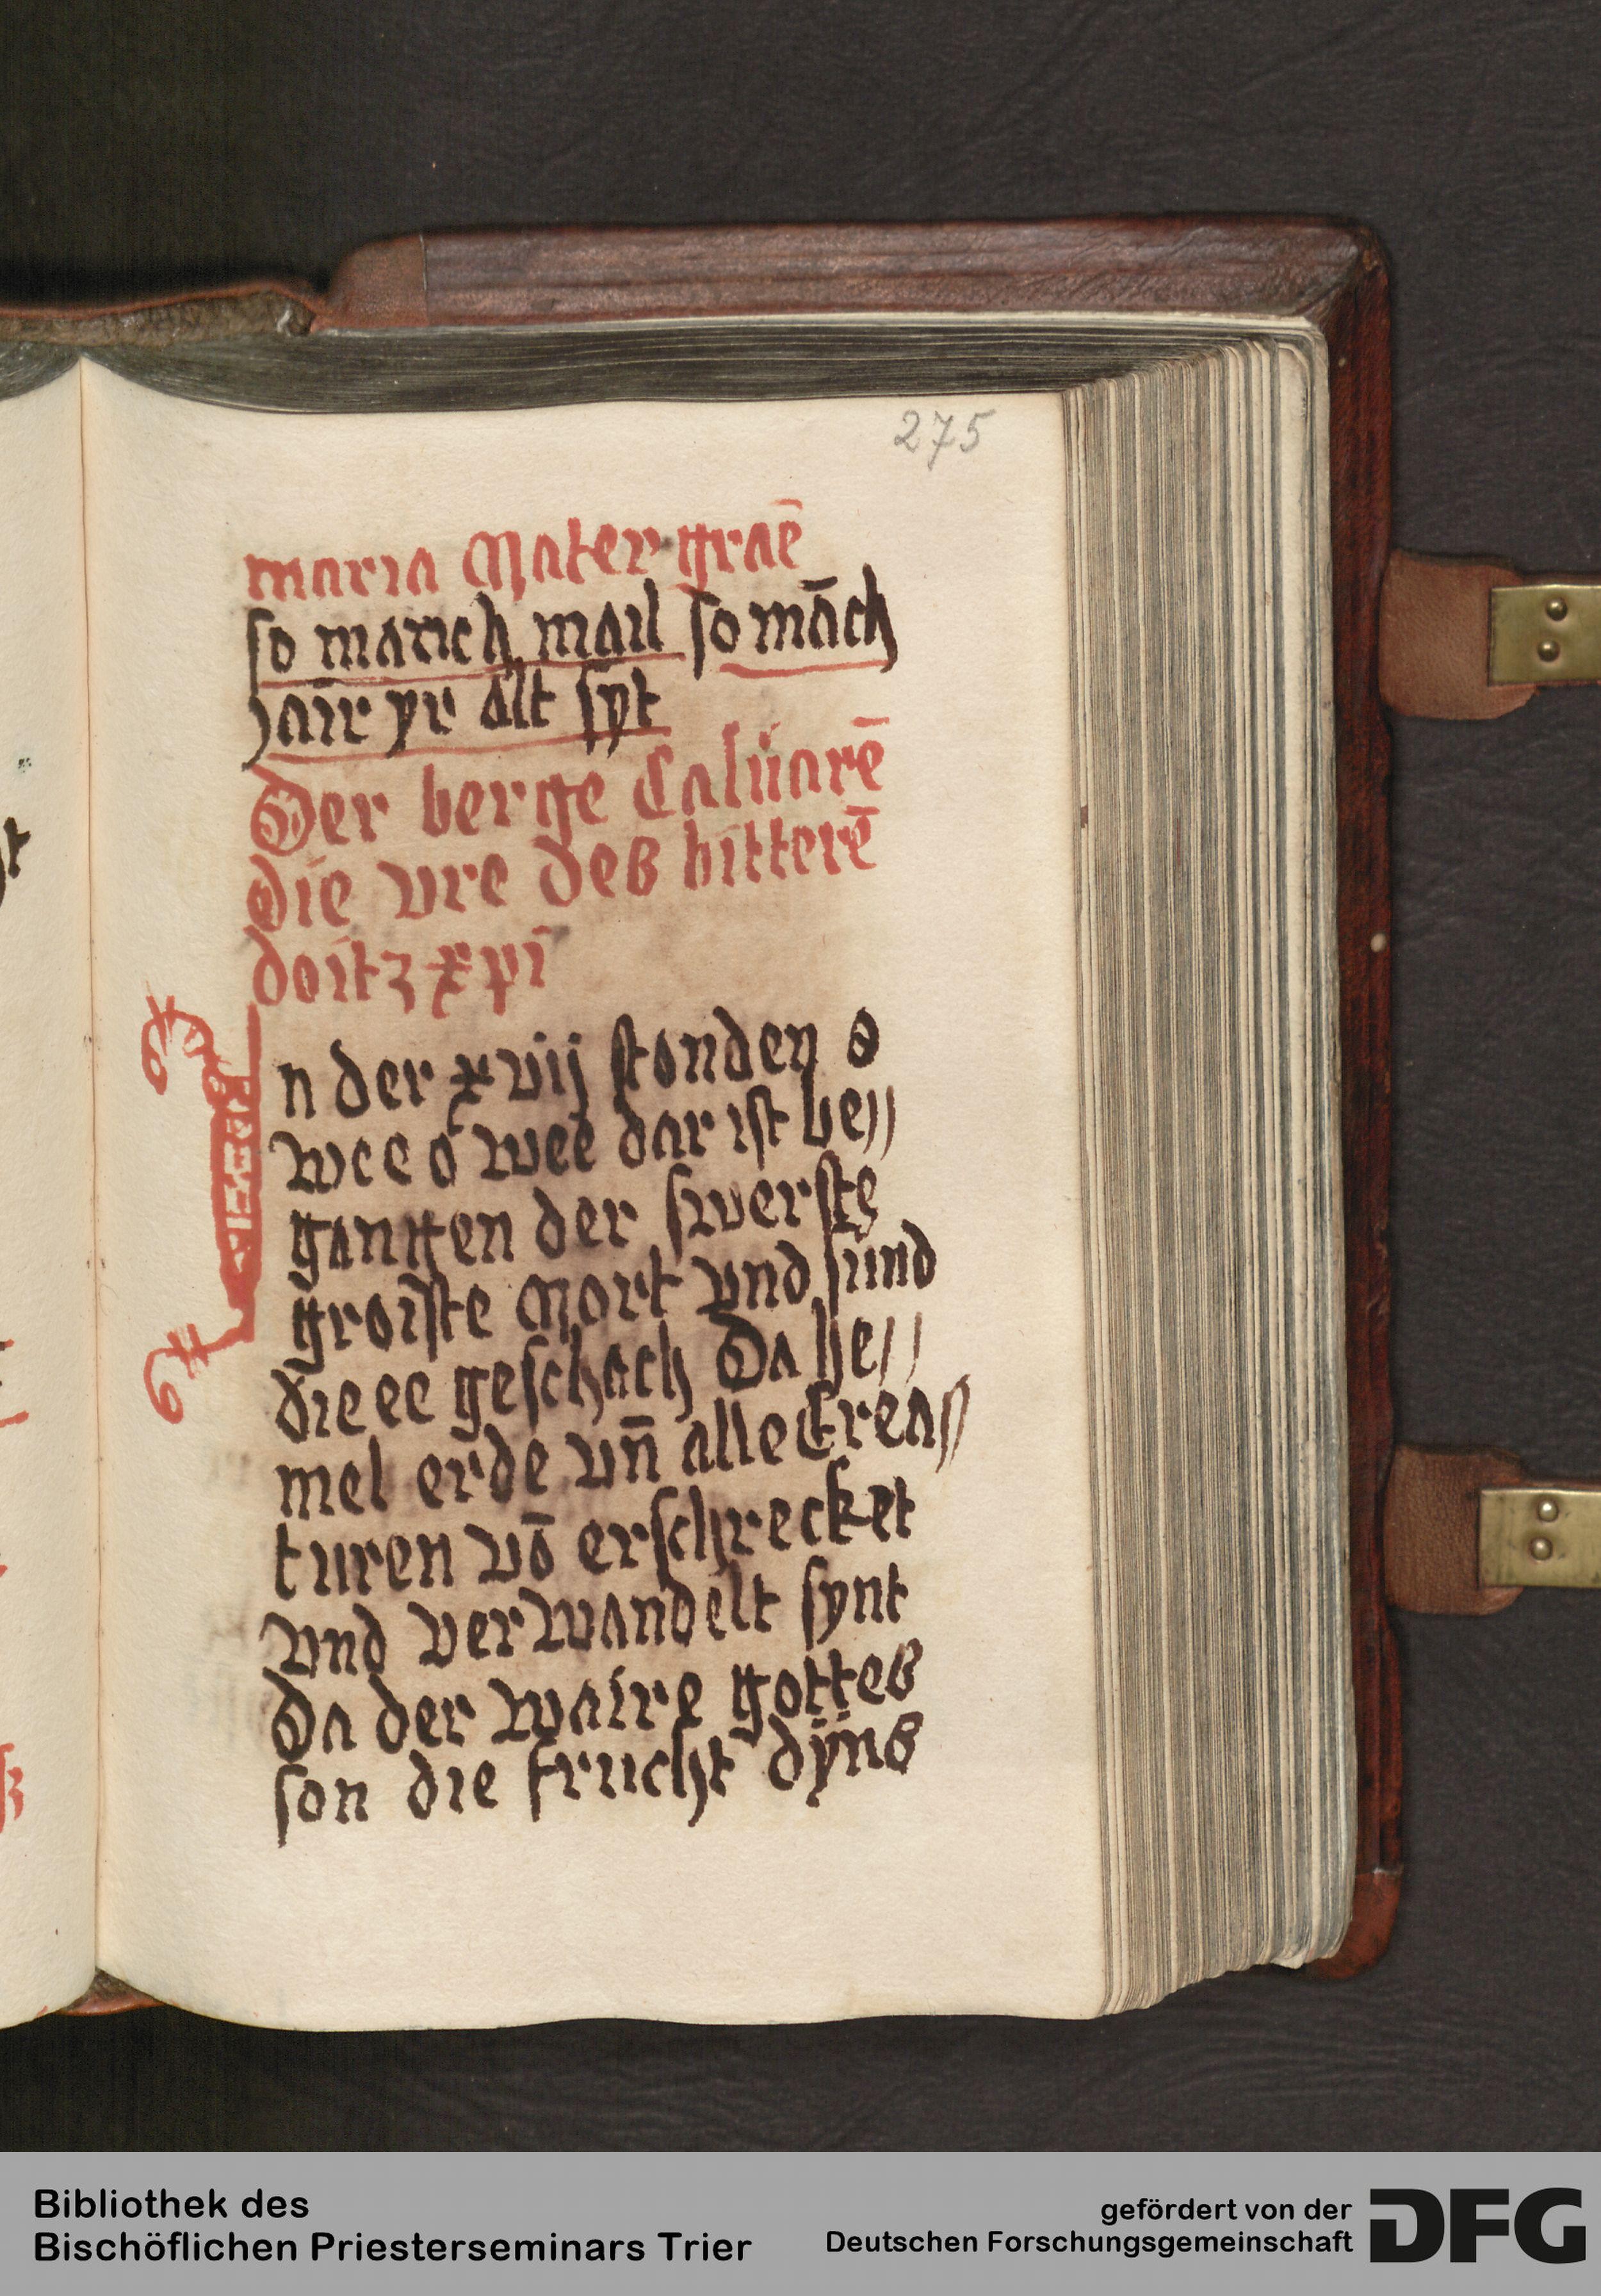 275
maria Mater graē
so manich mail so māch
jair yr alt syt
Der berge Caluarē
Die vre deß bitterē
doitz xpi
In der xvij stonden o
wee o wee dar ist be//
gangen der swerste
groiste Mort vnd sund
die ee geschach Da he//
mel erde vn̄ alle Crea//
turen vō erschrecket
vnd verwandelt synt
Da der waire gotteß
son die frucht dÿnß
Bibliothek des
Bischöflichen Priesterseminars Trier
gefördert von der
Deutschen Forschungsgemeinschaft
DFG